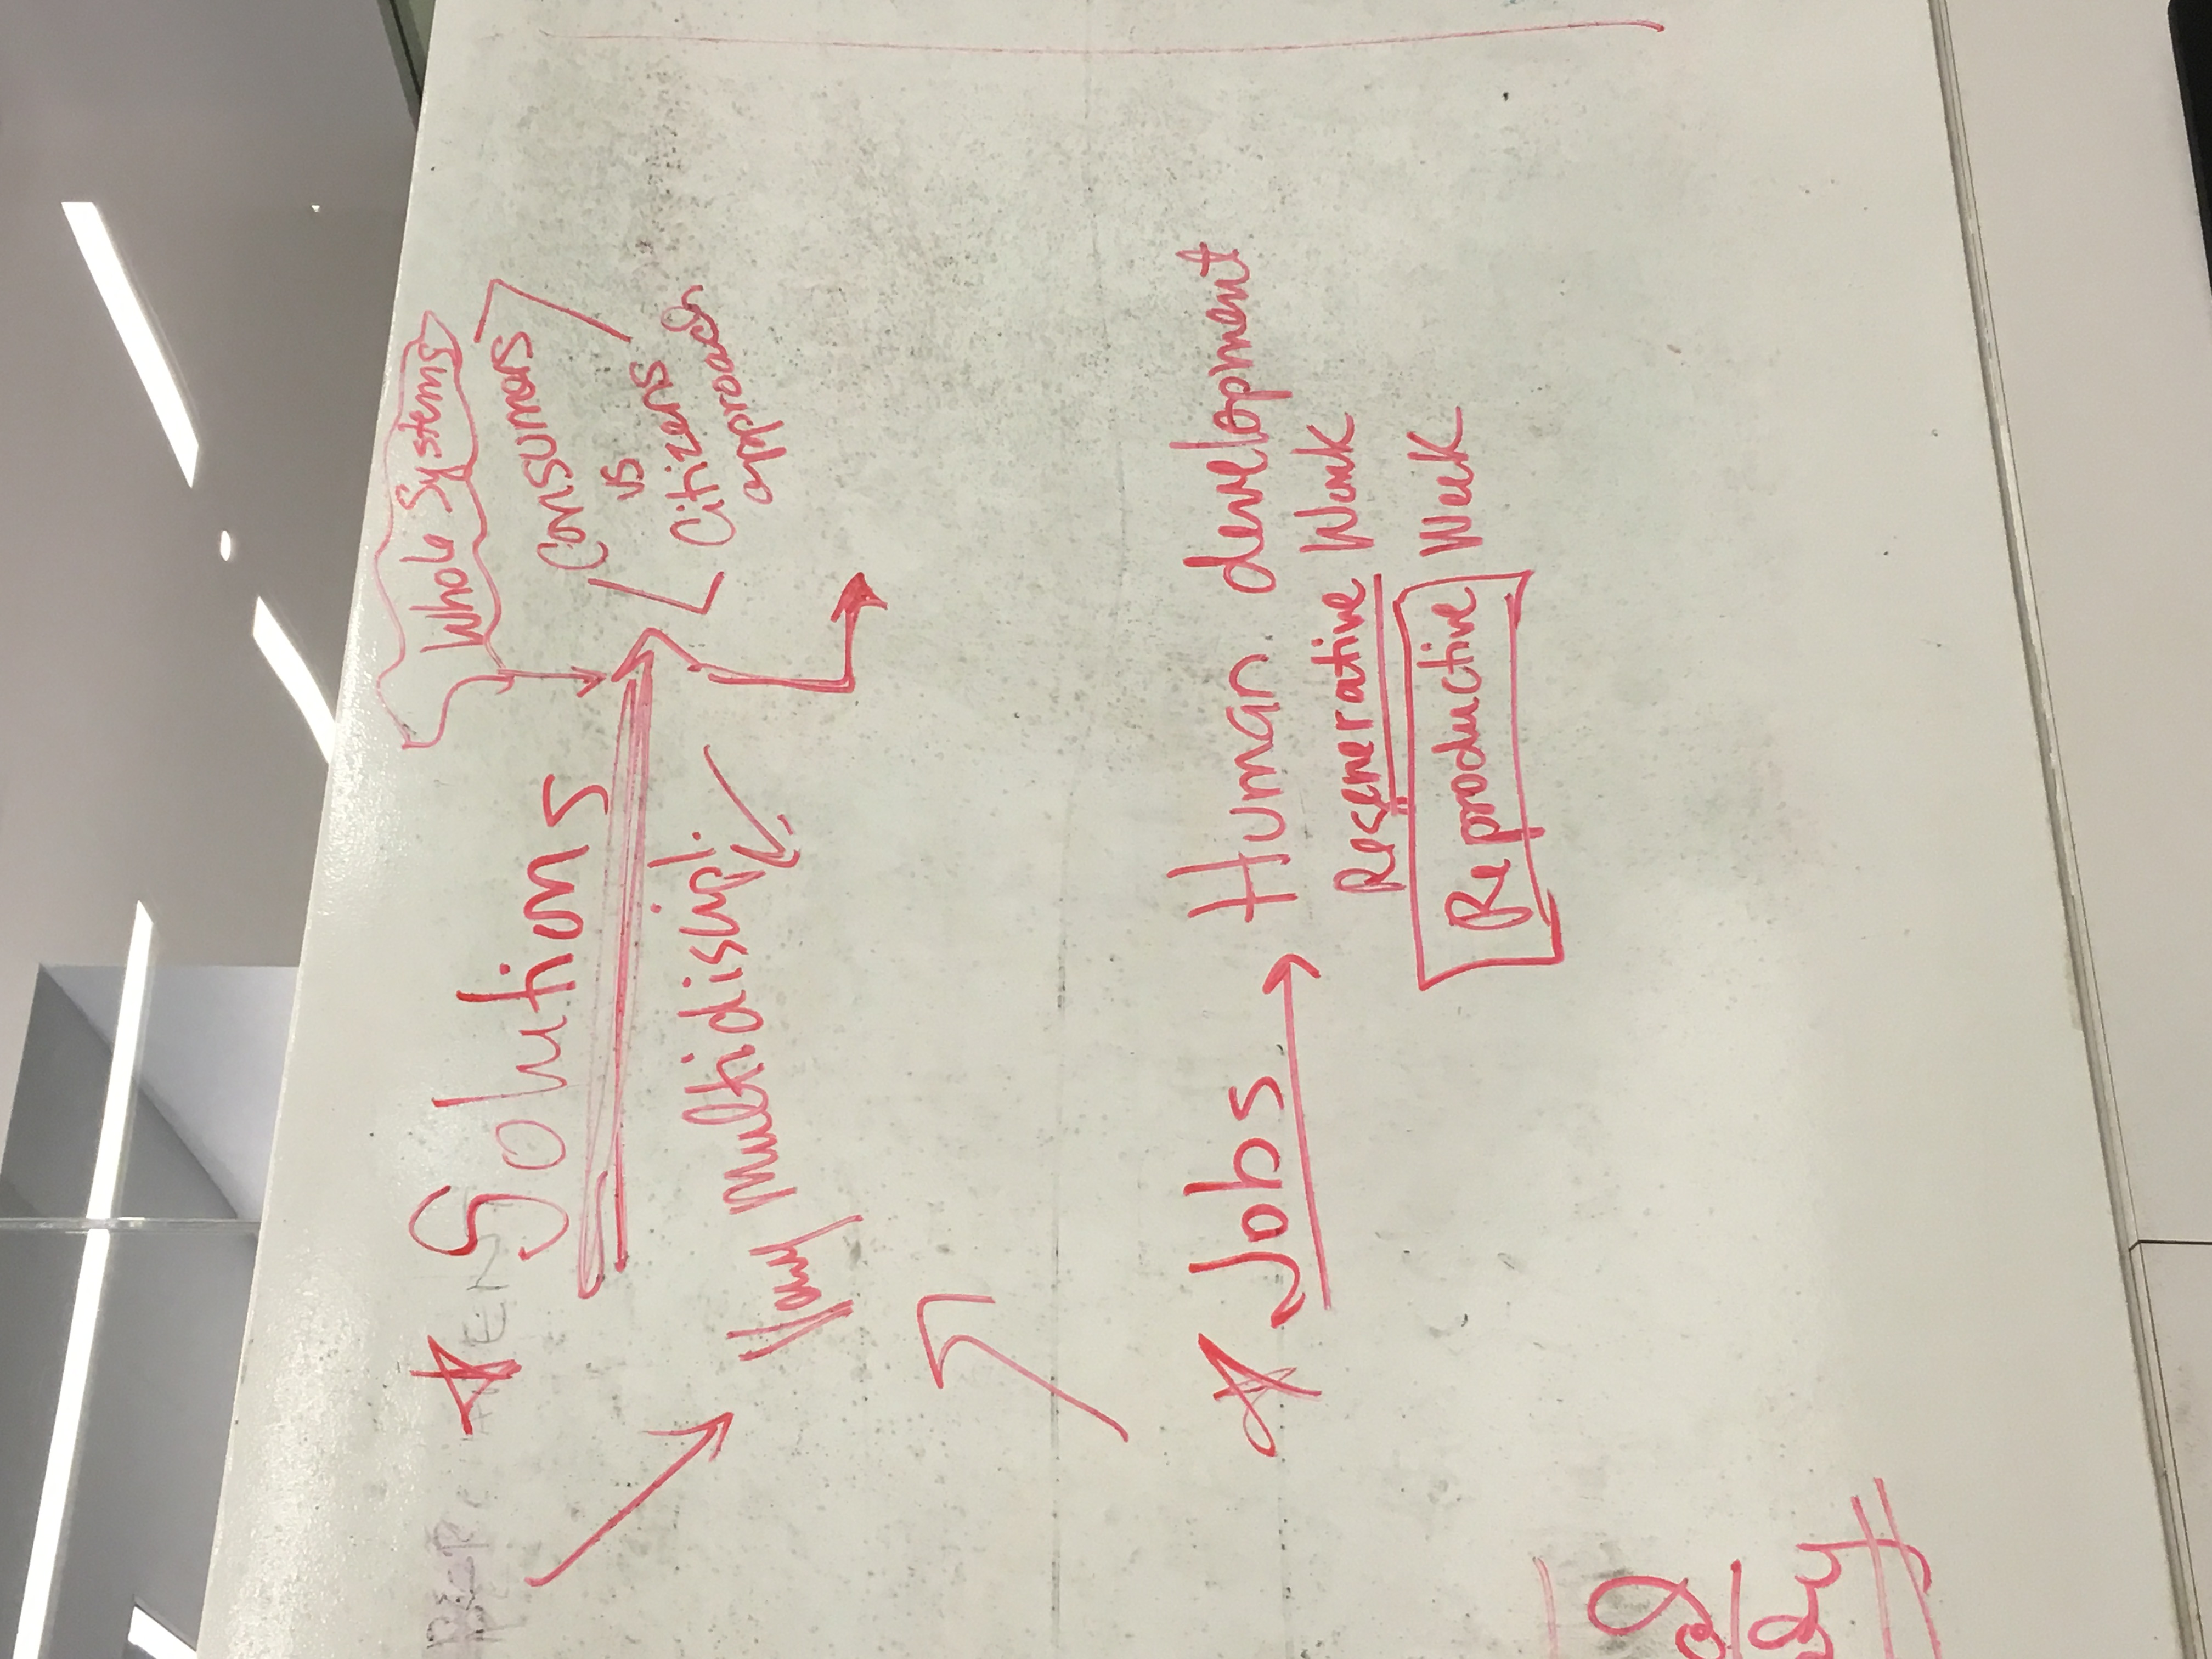 Whole Systems
Solutions
Consumers
vs
Citizens
approach
Very multidiscipl.
Jobs → Human development
Regenerative Work
Reproductive Work